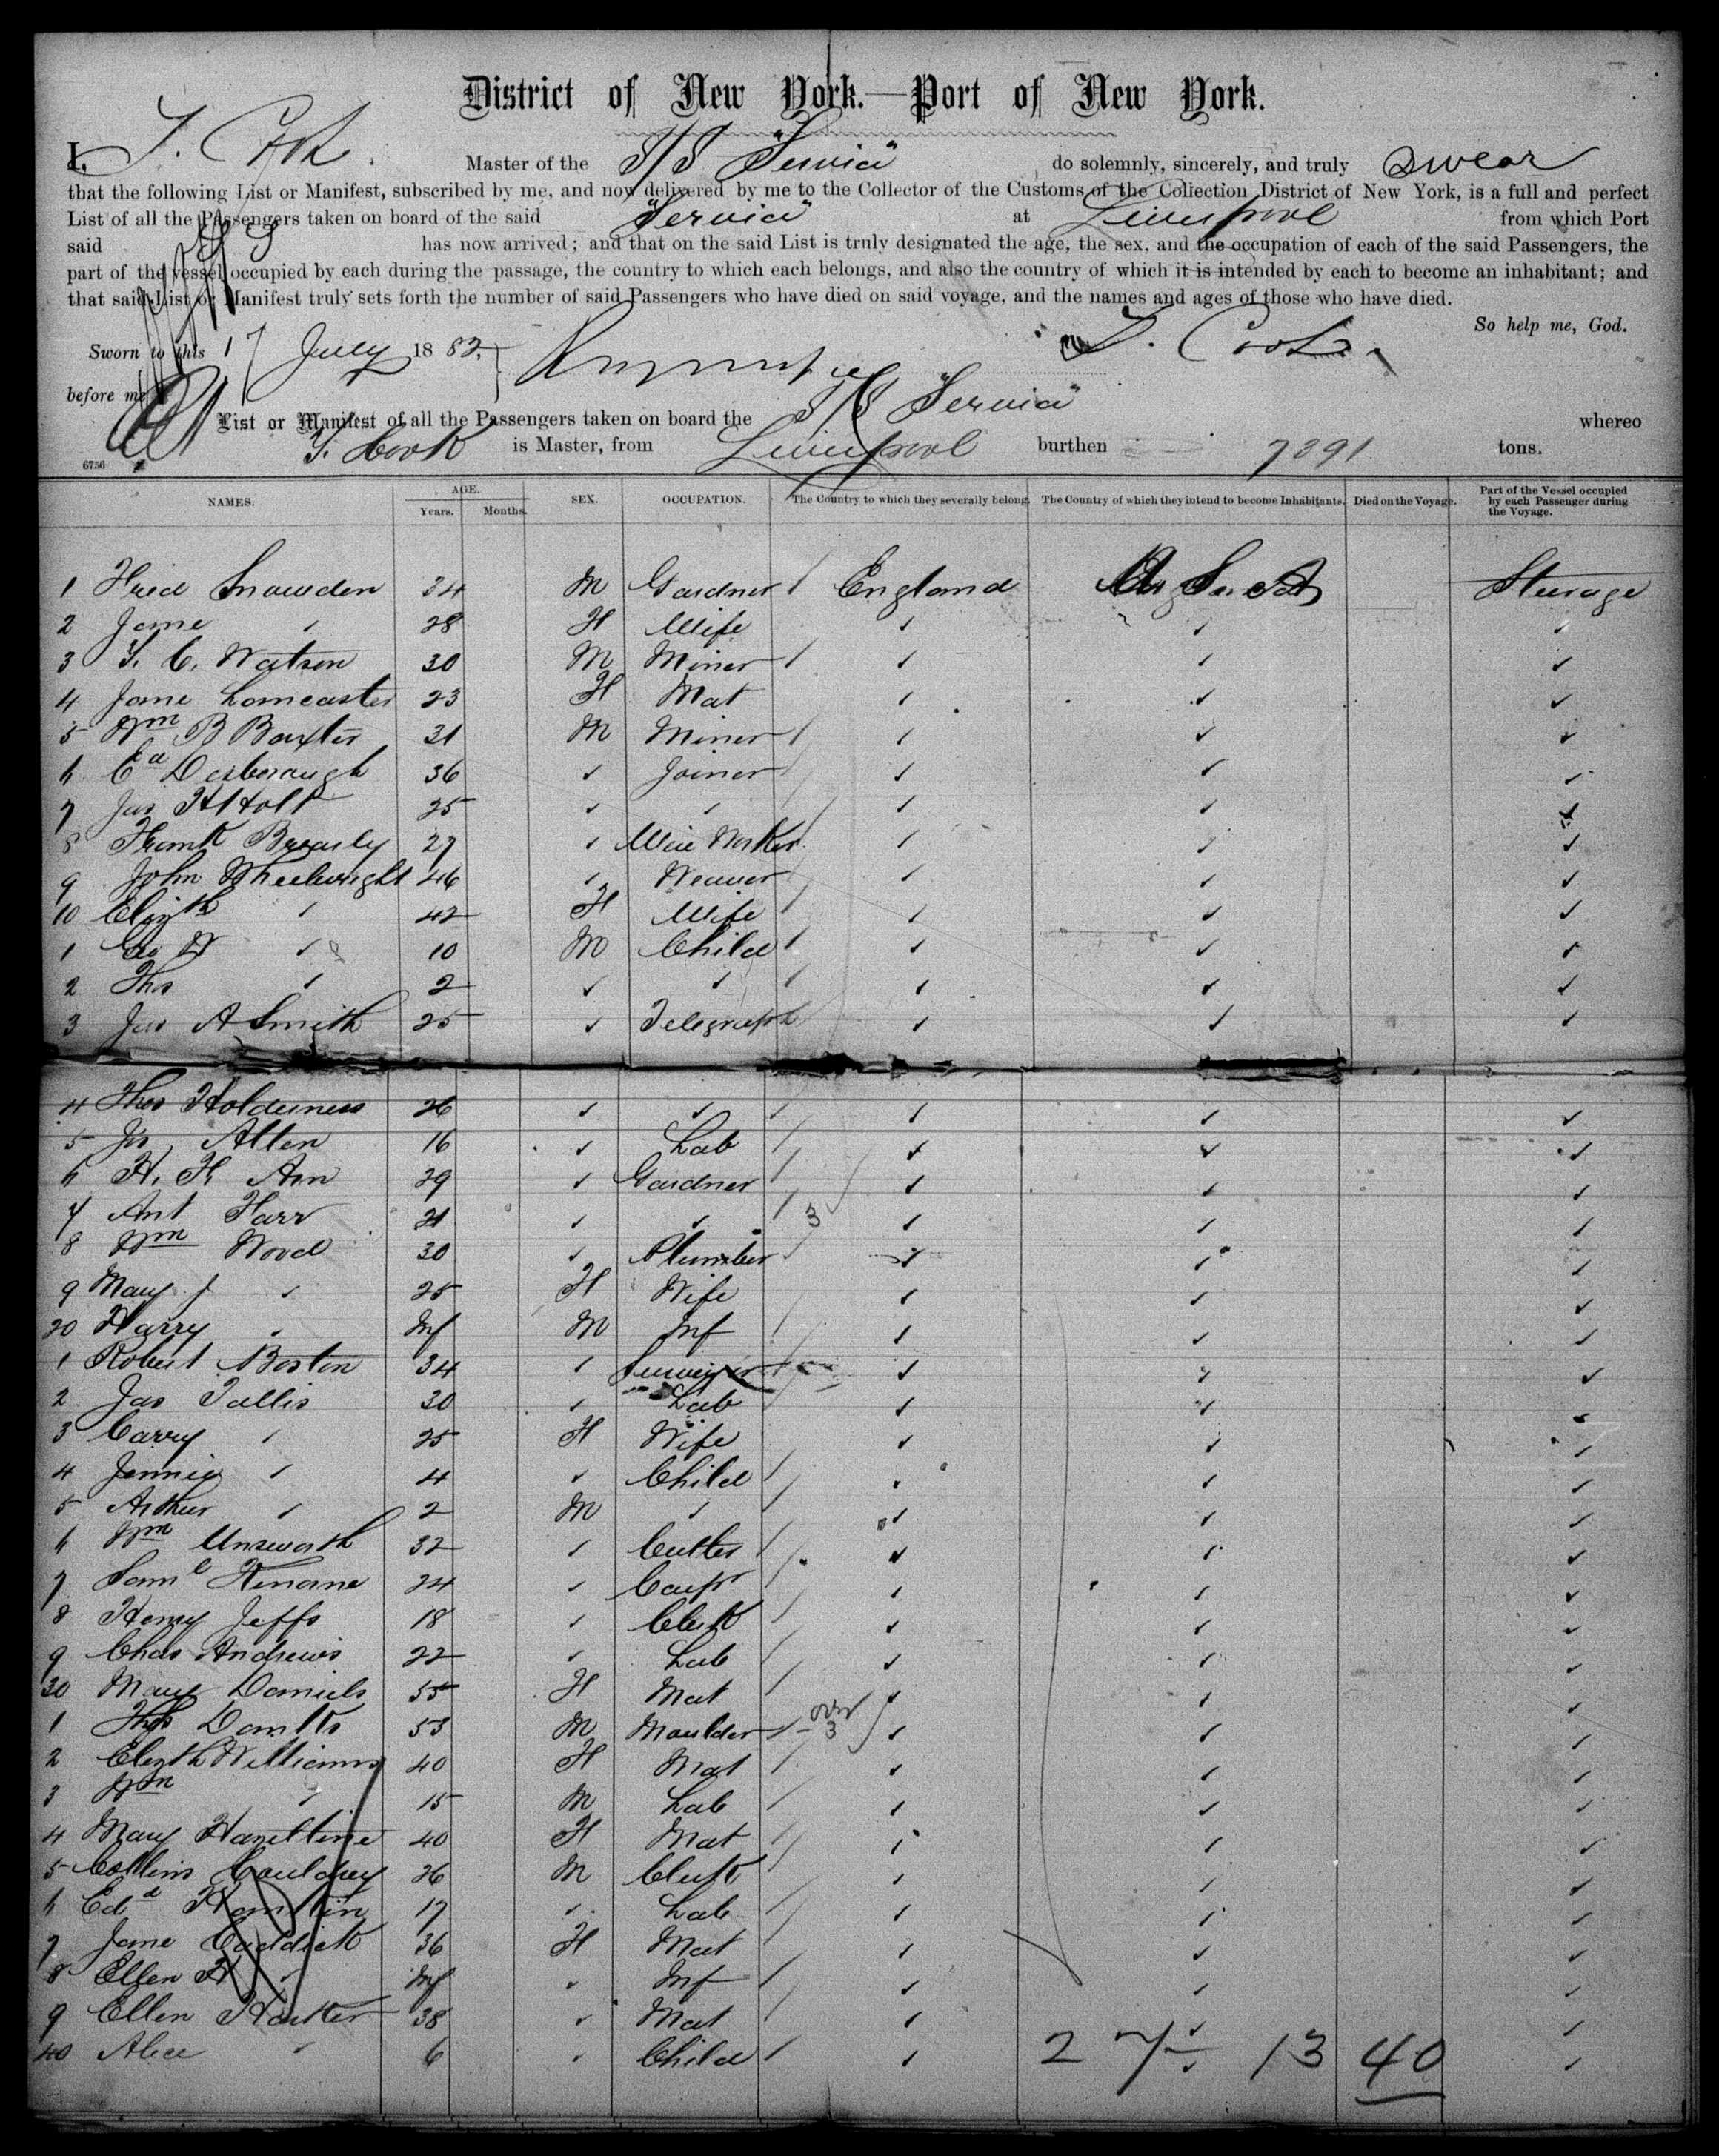 District of New York.—Port of New York.
I, T. Cook. Master of the S/S "Servia" do solemnly, sincerely, and truly swear
that the following List or Manifest, subscribed by me, and now delivered by me to the Collector of the Customs of the Collection District of New York, is a full and perfect
List of all the Passengers taken on board of the said "Servia" at Liverpool from which Port
said has now arrived; and that on the said List is truly designated the age, the sex, and the occupation of each of the said Passengers, the
part of the vessel occupied by each during the passage, the country to which each belongs, and also the country of which it is intended by each to become an inhabitant; and
that said List or Manifest truly sets forth the number of said Passengers who have died on said voyage, and the names and ages of those who have died.
So help me, God.
Sworn to this 17 July 1882. T. Cook.
before me
List or Manifest of all the Passengers taken on board the S/S "Servia" whereo
T. Cook is Master, from Liverpool burthen 7391 tons.
6756
NAMES. AGE. Years. Months. SEX. OCCUPATION. The Country to which they severally belong. The Country of which they intend to become Inhabitants. Died on the Voyage. Part of the Vessel occupied by each Passenger during the Voyage.
1 Fred Snowden 34 M Gardner England U S A Steerage
2 Jane " 28 F Wife " " "
3 T. C. Watson 30 M Miner " " "
4 Jane Lancaster 23 F Mat " " "
5 Wm B Baxter 31 M Miner " " "
6 Ed Desborough 36 " Joiner " " "
7 Jas H Holt 25 " " " " "
8 Frank Brearly 27 " Wire Worker " " "
9 John Wheelwright 46 " Weaver " " "
10 Elizth " 42 F Wife " " "
1 Geo W " 10 M Child " " "
2 Thos " 2 " " " " "
3 Jas A Smith 25 " Telegraph " " "
4 Thos Holderness 26 " " " " "
5 Js Allen 16 " Lab " " "
6 H. F. Ann 29 " Gardner " " "
7 Ant Farr 21 " " 3 " " "
8 Wm Wood 30 " Plumber " " "
9 Mary J " 25 F Wife " " "
20 Harry " Inf M Inf " " "
1 Robert Boston 34 " " " "
2 Jas Tallis 30 " Lab " " "
3 Carry " 25 F Wife " " "
4 Jennie " 4 " Child " " "
5 Arthur " 2 M " " " "
6 Wm Unsworth 32 " Cutter " " "
7 Saml Kinane 24 " Carpr " " "
8 Henry Jeffs 18 " Clerk " " "
9 Chas Andrews 22 " Lab " " "
30 Mary Daniels 55 F Mat " " "
1 Thos 53 M Moulder 3 " " "
2 Elizth Williams 40 F Mat " " "
3 Wm " 15 M Lab " " "
4 Mary Hazeltine 40 F Mat " " "
5 Collins Cauldrey 26 M Clerk " " "
6 Edd Hamlin 17 " Lab " " "
7 Jane Caddick 36 F Mat " " "
8 Ellen H " Inf " Inf " " "
9 Ellen 38 " Mat " " "
40 Alice " 6 " Child " " "
27 13 40